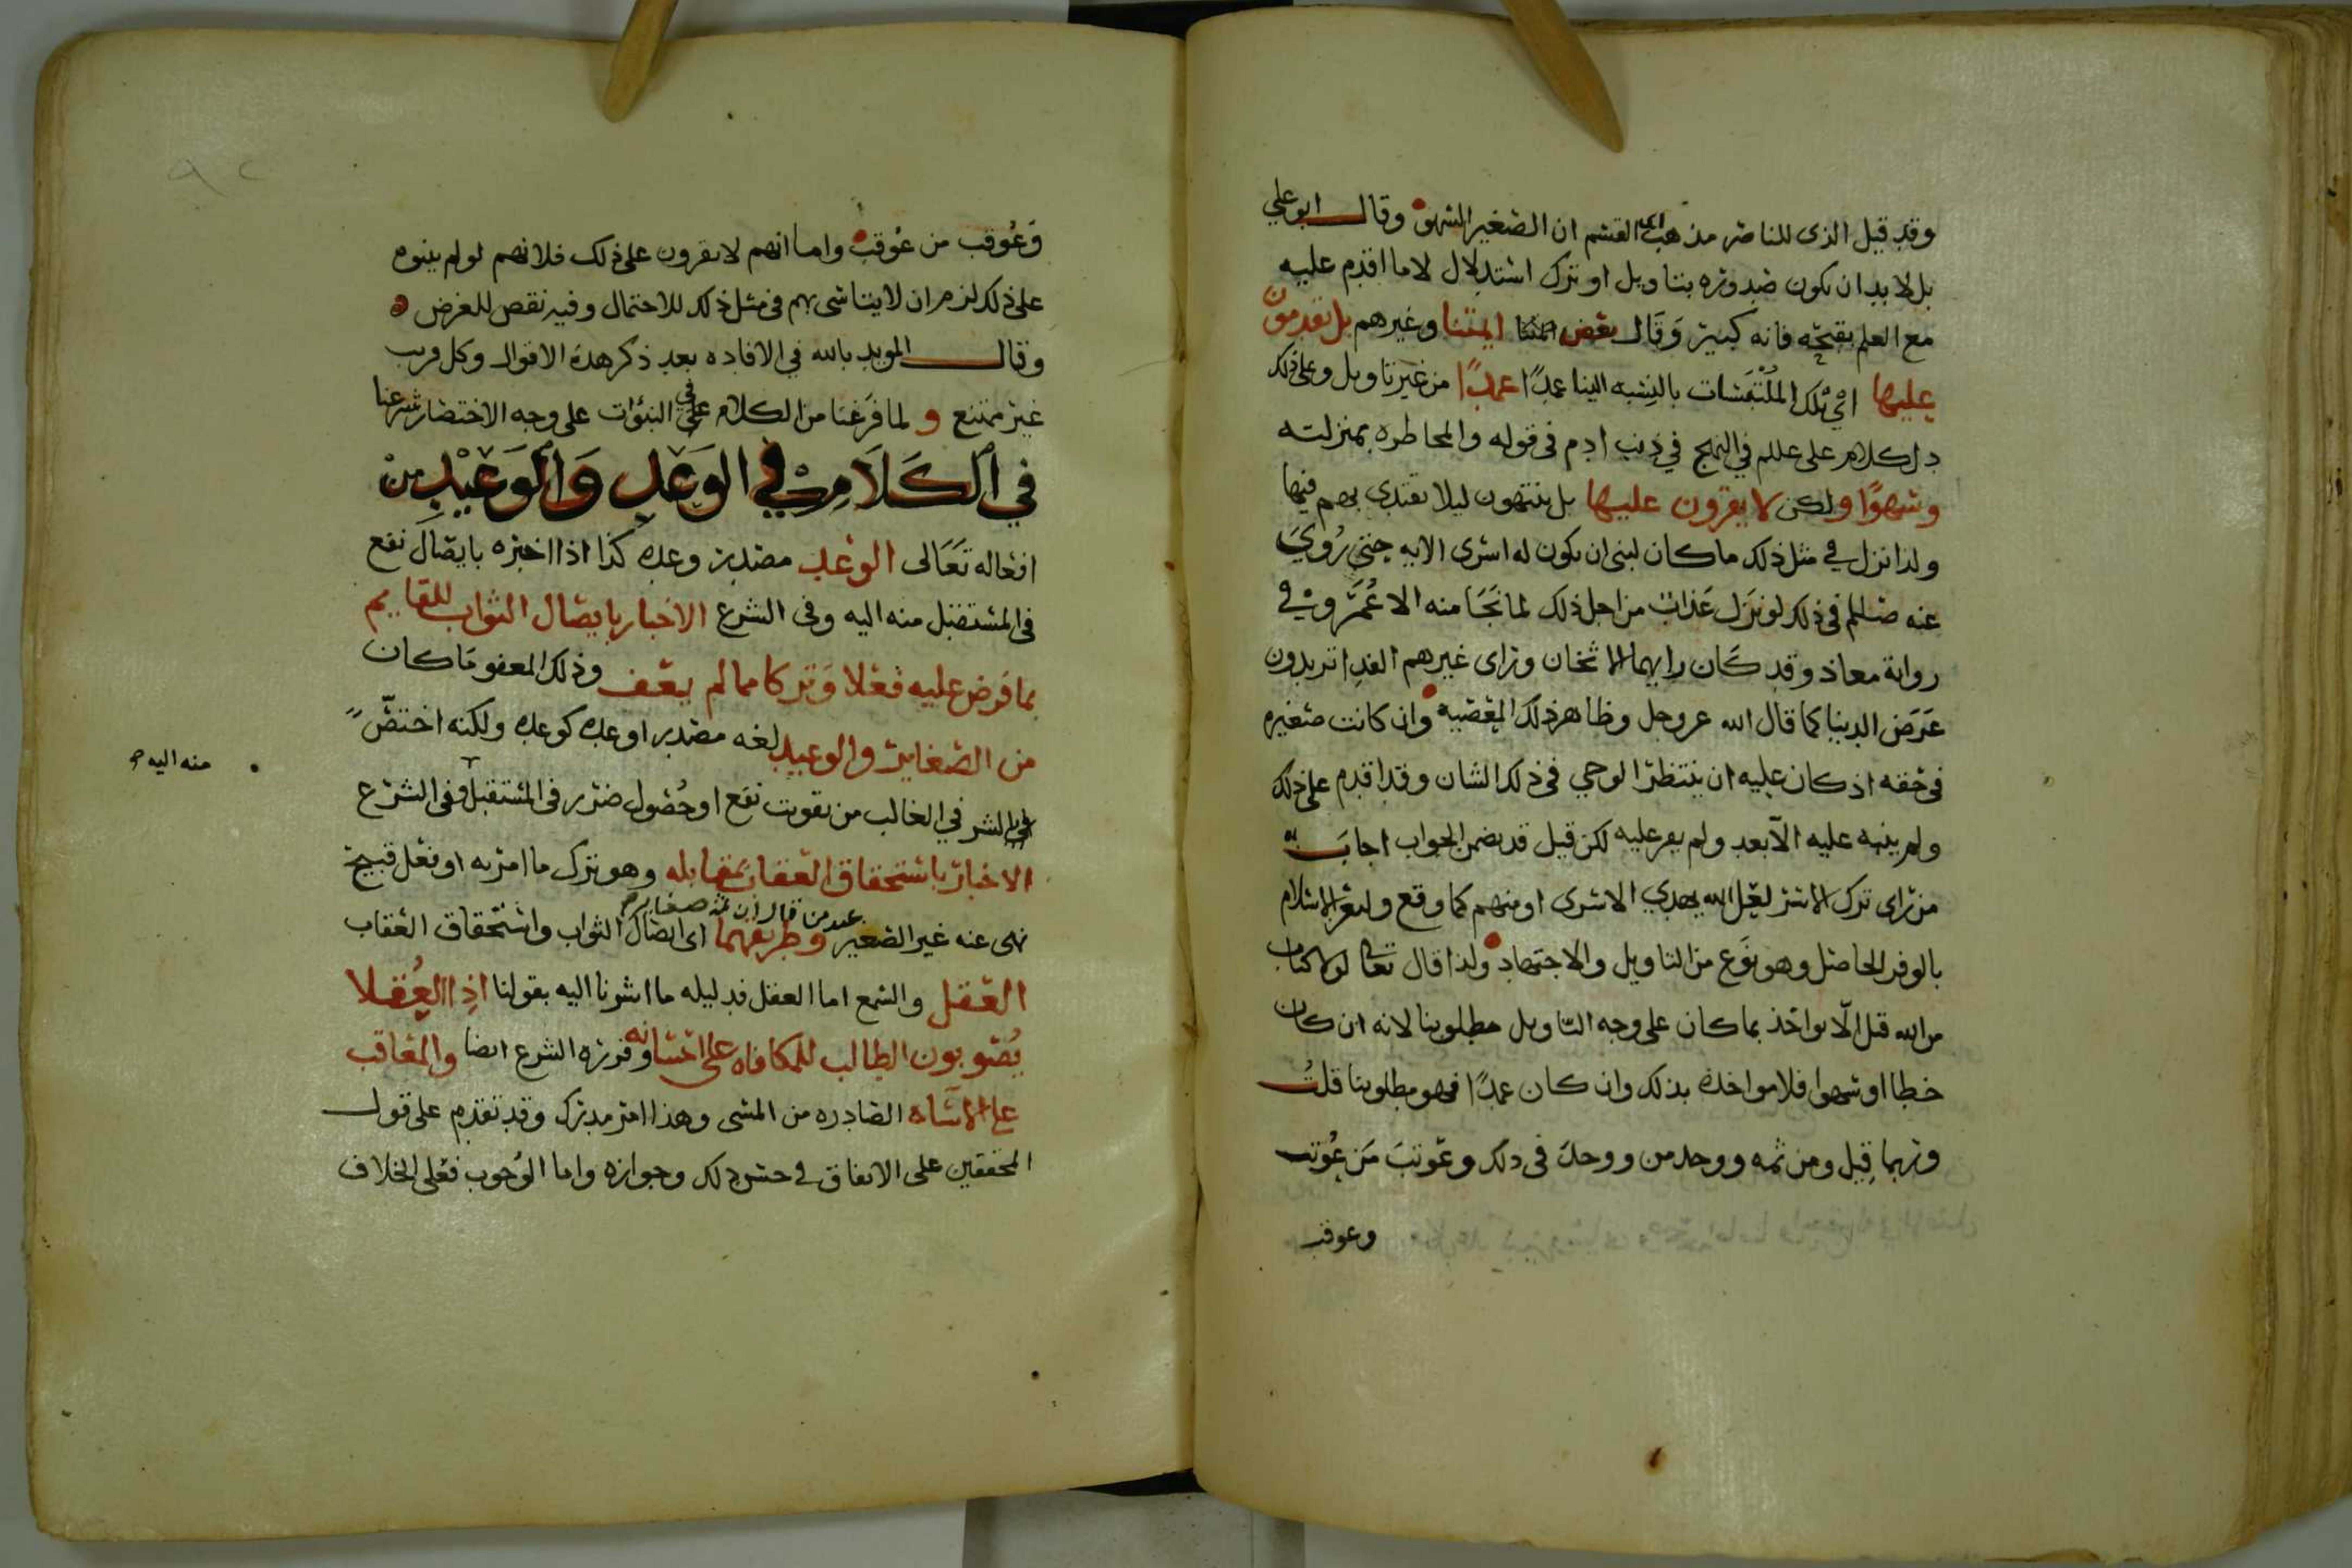 وقد قيل الذي للناصر مذهب ابي القسم ان الصغير السهو وقال ابو علي
بل لا بد ان يكون صدوره بتاويل او ترك استدلال لا ما اقدم عليه
مع العلم بقبحه فانه كبير وَقَال بعض ايمتنا وغيرهم بل يقدمون
عليها اي تلك الملتبسات بالنسبه الينا عمدًا من غير تاويل وعلى ذلك
دل كلام علي علم في النهج في ذنب ادم في قوله والمخاطره بمنزلته
وسهوًا ولكن لا يقرون عليها بل ينتهون ليلا يقتدى بهم فيها
ولذا نزل في مثل ذلك ما كان لنبي ان يكون له اسرى الايه حتى رُوِيَ
عنه صللم في ذلك لو نزل عَذاب من اجل ذلك لما نَجَا منه الا عُمَر وفي
رواية معاذ وقد كَان رايهما الاثخان وراى غيرهم الفدا تريدون
عَرَض الدنيا كما قال الله عز وجل وظاهر ذلك المعصيه وان كانت صغيره
في حقه اذ كان عليه ان ينتظر الوحي في ذلك الشان وقد اقدم على ذلك
ولم ينبه عليه الا بعد ولم يقر عليه لكن قيل قد يضمن الجواب اجابَــ
من راى ترك الاسر لعل الله يهدي الاسرى او منهم كما وقع وليعز الاسلام
بالوفر الحاصل وهو نَوع من التاويل والاجتهاد ولذا قال تعالى لولا كتاب
من الله قيل الّا يواخذ بما كان على وجه التاويل مطلوبنا لانه ان كان
خطا او سهوا فلا مواخذة بذلك وان كان عمدًا فهو مطلوبنا قلتُ
وربما قِيل ومن ثمه ووحد من ووحدَ في ذلك وعُوتبَ مَن عُوتب
وعوقب
وَعُوقب من عُوقب واما انهم لا يقرون على ذلك فلانهم لو لم ينبوه
على ذلك لزم ان لا يتاسى بهم في مثل ذلك للاحتمال وفيه نقص للغرض
وقال المويد بالله في الافاده بعد ذكر هذه الاقوال وكل قريب
غير ممتنع و لما فَرَغنا من الكلام في النبوات على وجه الاختصار شرعنا
في الكَلَام في الوَعْدِ وَالوَعيْدِ من
افعاله تَعَالى الوعد مصدر وعده كذا اذا اخبره بايصال نفع
في المستقبل منه اليه وفي الشرع الاخبار بايصال الثواب للقايم
بما فرض عليه فعلا وَتركا مما لم يعف وذلك المعفو مَا كان
من الصغاير والوعيد لغه مصدر اوعده كوعده ولكنه اختصّ
بالشر في الغالب من تفويت نفع او حُصول ضرر في المستقبل وفي الشرع
منه اليه
الاخبار باستحقاق العقاب بمقابله وهو ترك ما امر به او فعل قبيح
نهي عنه غير الصغير عند من قال ان ثمه صغاير وطريقهما اي ايصال الثواب واستحقاق العقاب
العقل والسمع اما العقل فدليله ما اشرنا اليه بقولنا اذ العُقلا
يُصوبون الطالب للمكافاه على احسانه وقرره الشرع ايضا والمعاقب
على الاساه الصادره من المسي وهذا امر مدرك وقد تقدم على قول
المحققين على الاتفاق في حسن ذلك وجوازه واما الوُجوب فعلى الخلاف